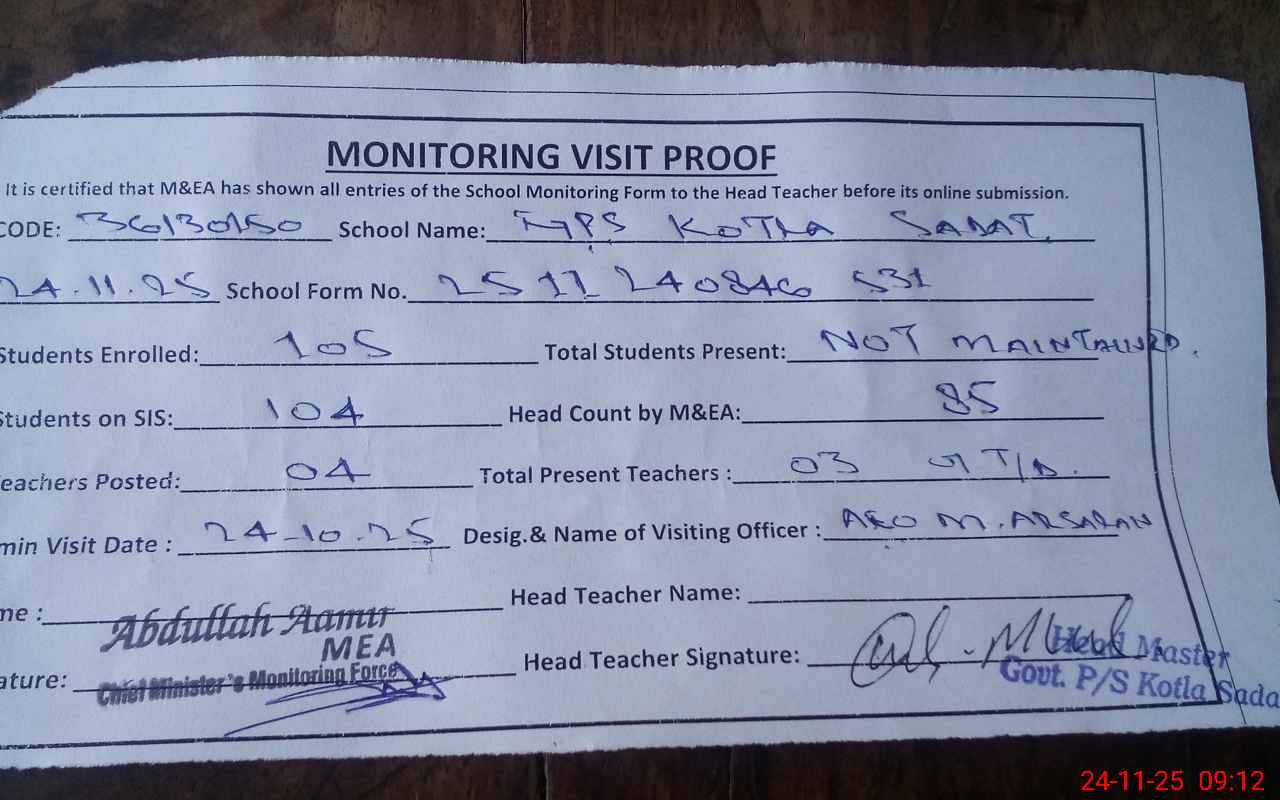 MONITORING VISIT PROOF
It is certified that M&EA has shown all entries of the School Monitoring Form to the Head Teacher before its online submission.
CODE: 36130150 School Name: KOTLA SADAT
24.11.25 School Form No. 25 11 240846 531
Students Enrolled: 105 Total Students Present: NOT MAINTAINED.
Students on SIS: 104 Head Count by M&EA: 85
eachers Posted: 04 Total Present Teachers : 03
min Visit Date : 24-10.25 Desig.& Name of Visiting Officer : M. ARSALAN
me : Abdullah Aamir Head Teacher Name:
MEA
ature: Chief Minister's Monitoring Force Head Teacher Signature:
Head Master
Govt. P/S Kotla Sada
24-11-25 09:12